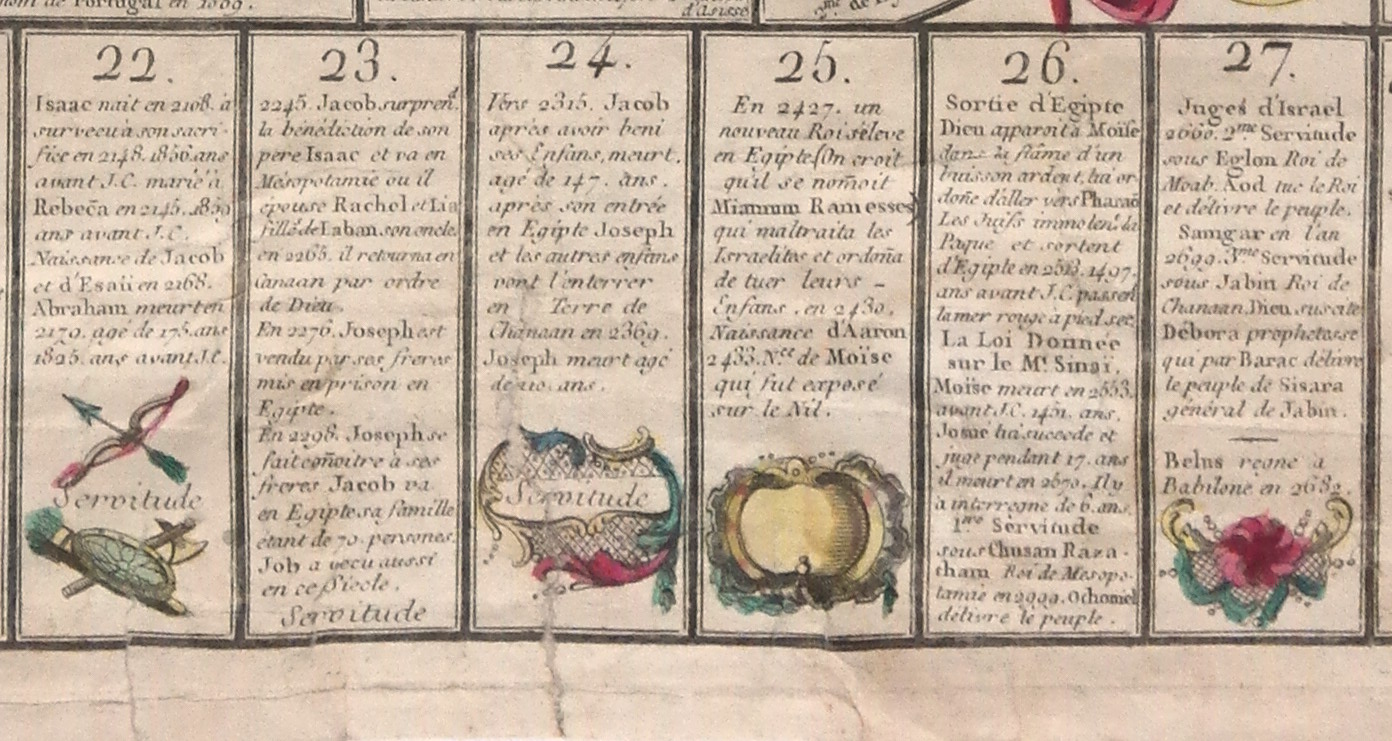 Portugal en
d'Asisse
2.me de
22.
Isaac nait en 2108. a
survecu à son sacri-
fice en 2148. 1856. ans
avant J.C. marié à
Rebeca en 2145. 1859
ans avant J.C.
Naissance de Jacob
et d'Esaü en 2168.
Abraham meurt en
2179. agé de 175. ans
1825. ans avant J.C.
Servitude
23.
2245. Jacob surprend.
la bénédiction de son
pere Isaac et va en
Mésopotamie ou il
épouse Rachel et Lia
fille de Laban son oncle.
en 2265. il retourna en
Canaan par ordre
de Dieu.
En 2276. Joseph est
vendu par ses freres
mis en prison en
Egipte.
En 2298. Joseph se
fait coñoitre à ses
freres Jacob va
en Egipte sa famille
étant de 70. persones.
Job a vecu aussi
en ce Siecle.
Servitude
24.
Vers 2315. Jacob
après avoir beni
ses Enfans, meurt.
agé de 147. ans.
après son entrée
en Egipte Joseph
et les autres enfans
vont l'enterrer
en Terre de
Chanaan en 2369.
Joseph meurt agé
de 110. ans.
Servitude
25.
En 2427. un
nouveau Roi s'éleve
en Egipte (On croit
qu'il se nom̃oit
Miamum Ramesses)
qui maltraita les
Israelites et ordoña
de tuer leurs -
Enfans. en 2430.
Naissance d'Aaron
2433. N.ce de Moïse
qui fut exposé
sur le Nil.
26.
Sortie d'Egipte
Dieu apparoit à Moïse
dans la flâme d'un
buisson ardent, lui or-
doñe d'aller vers Pharaõ
Les Juifs immolent la
Paque et sortent
d'Egipte en 2513. 1497.
ans avant J.C. passent
la mer rouge à pied sec.
La Loi Donnée
sur le Mt. Sinaï.
Moïse meurt en 2553.
avant J.C. 1451. ans.
Josué lui succede et
juge pendant 17. ans
il meurt en 2570. Il y
a interregne de 6. ans.
1.ere Servitude
sous Chusan Raza-
tham Roi de Mesopo-
tamie en 2999. Othoniel
délivre le peuple.
27.
Juges d'Israel
2660. 2.me Servitude
sous Eglon Roi de
Moab. Aod tue le Roi
et délivre le peuple.
Samgar en l'an
2699. 3.me Servitude
sous Jabin Roi de
Chanaan. Dieu suscite
Débora prophetesse
qui par Barac délivre
le peuple de Sisara
général de Jabin.
Belus regne a
Babilone en 2682.